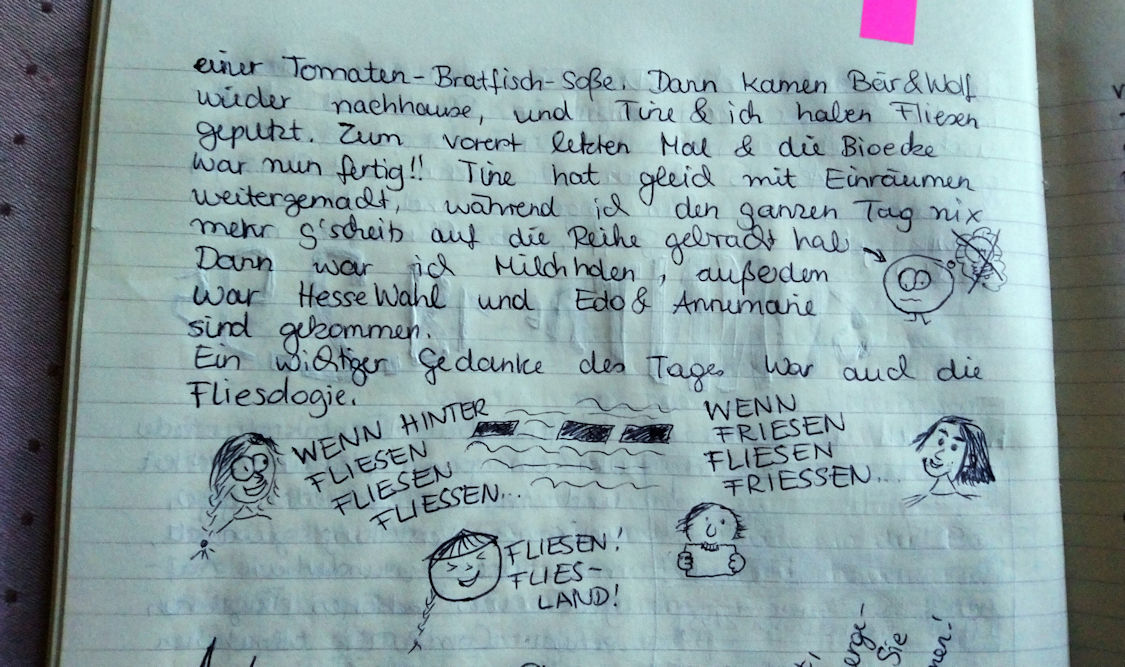 einer Tomaten-Bratfisch-Soße. Dann kamen Bär & Wolf
wieder nachhause, und Tine & ich haben Fliesen
geputzt. Zum vorerst letzten Mal & die Bioecke
war nun fertig!! Tine hat gleich mit Einräumen
weitergemacht, während ich den ganzen Tag nix
mehr g'scheids auf die Reihe gebracht hab
Dann war ich Milchholen, außerdem
war HesseWahl und Edo & Annemarie
sind gekommen.
Ein wichtiger Gedanke des Tages war auch die
Fliesologie.
WENN HINTER
FLIESEN
FLIESEN
FLIESSEN...
WENN
FRIESEN
FLIESEN
FRIESSEN...
FLIESEN!
FLIES-
LAND!
Sie